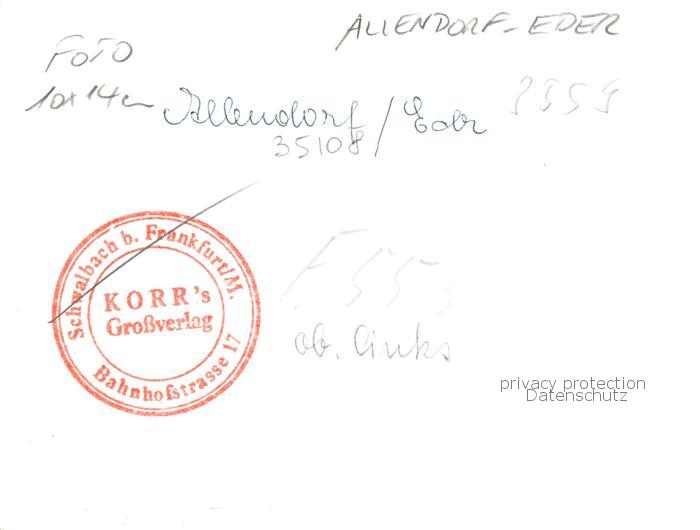 ALLENDORF-EDER
FOTO
10x14cm
Allendorf/Eder
35108
Schwalbach b. Frankfurt/M.
KORR's
Großverlag
Bahnhofstrasse 17
ob. links
privacy protection
Datenschutz